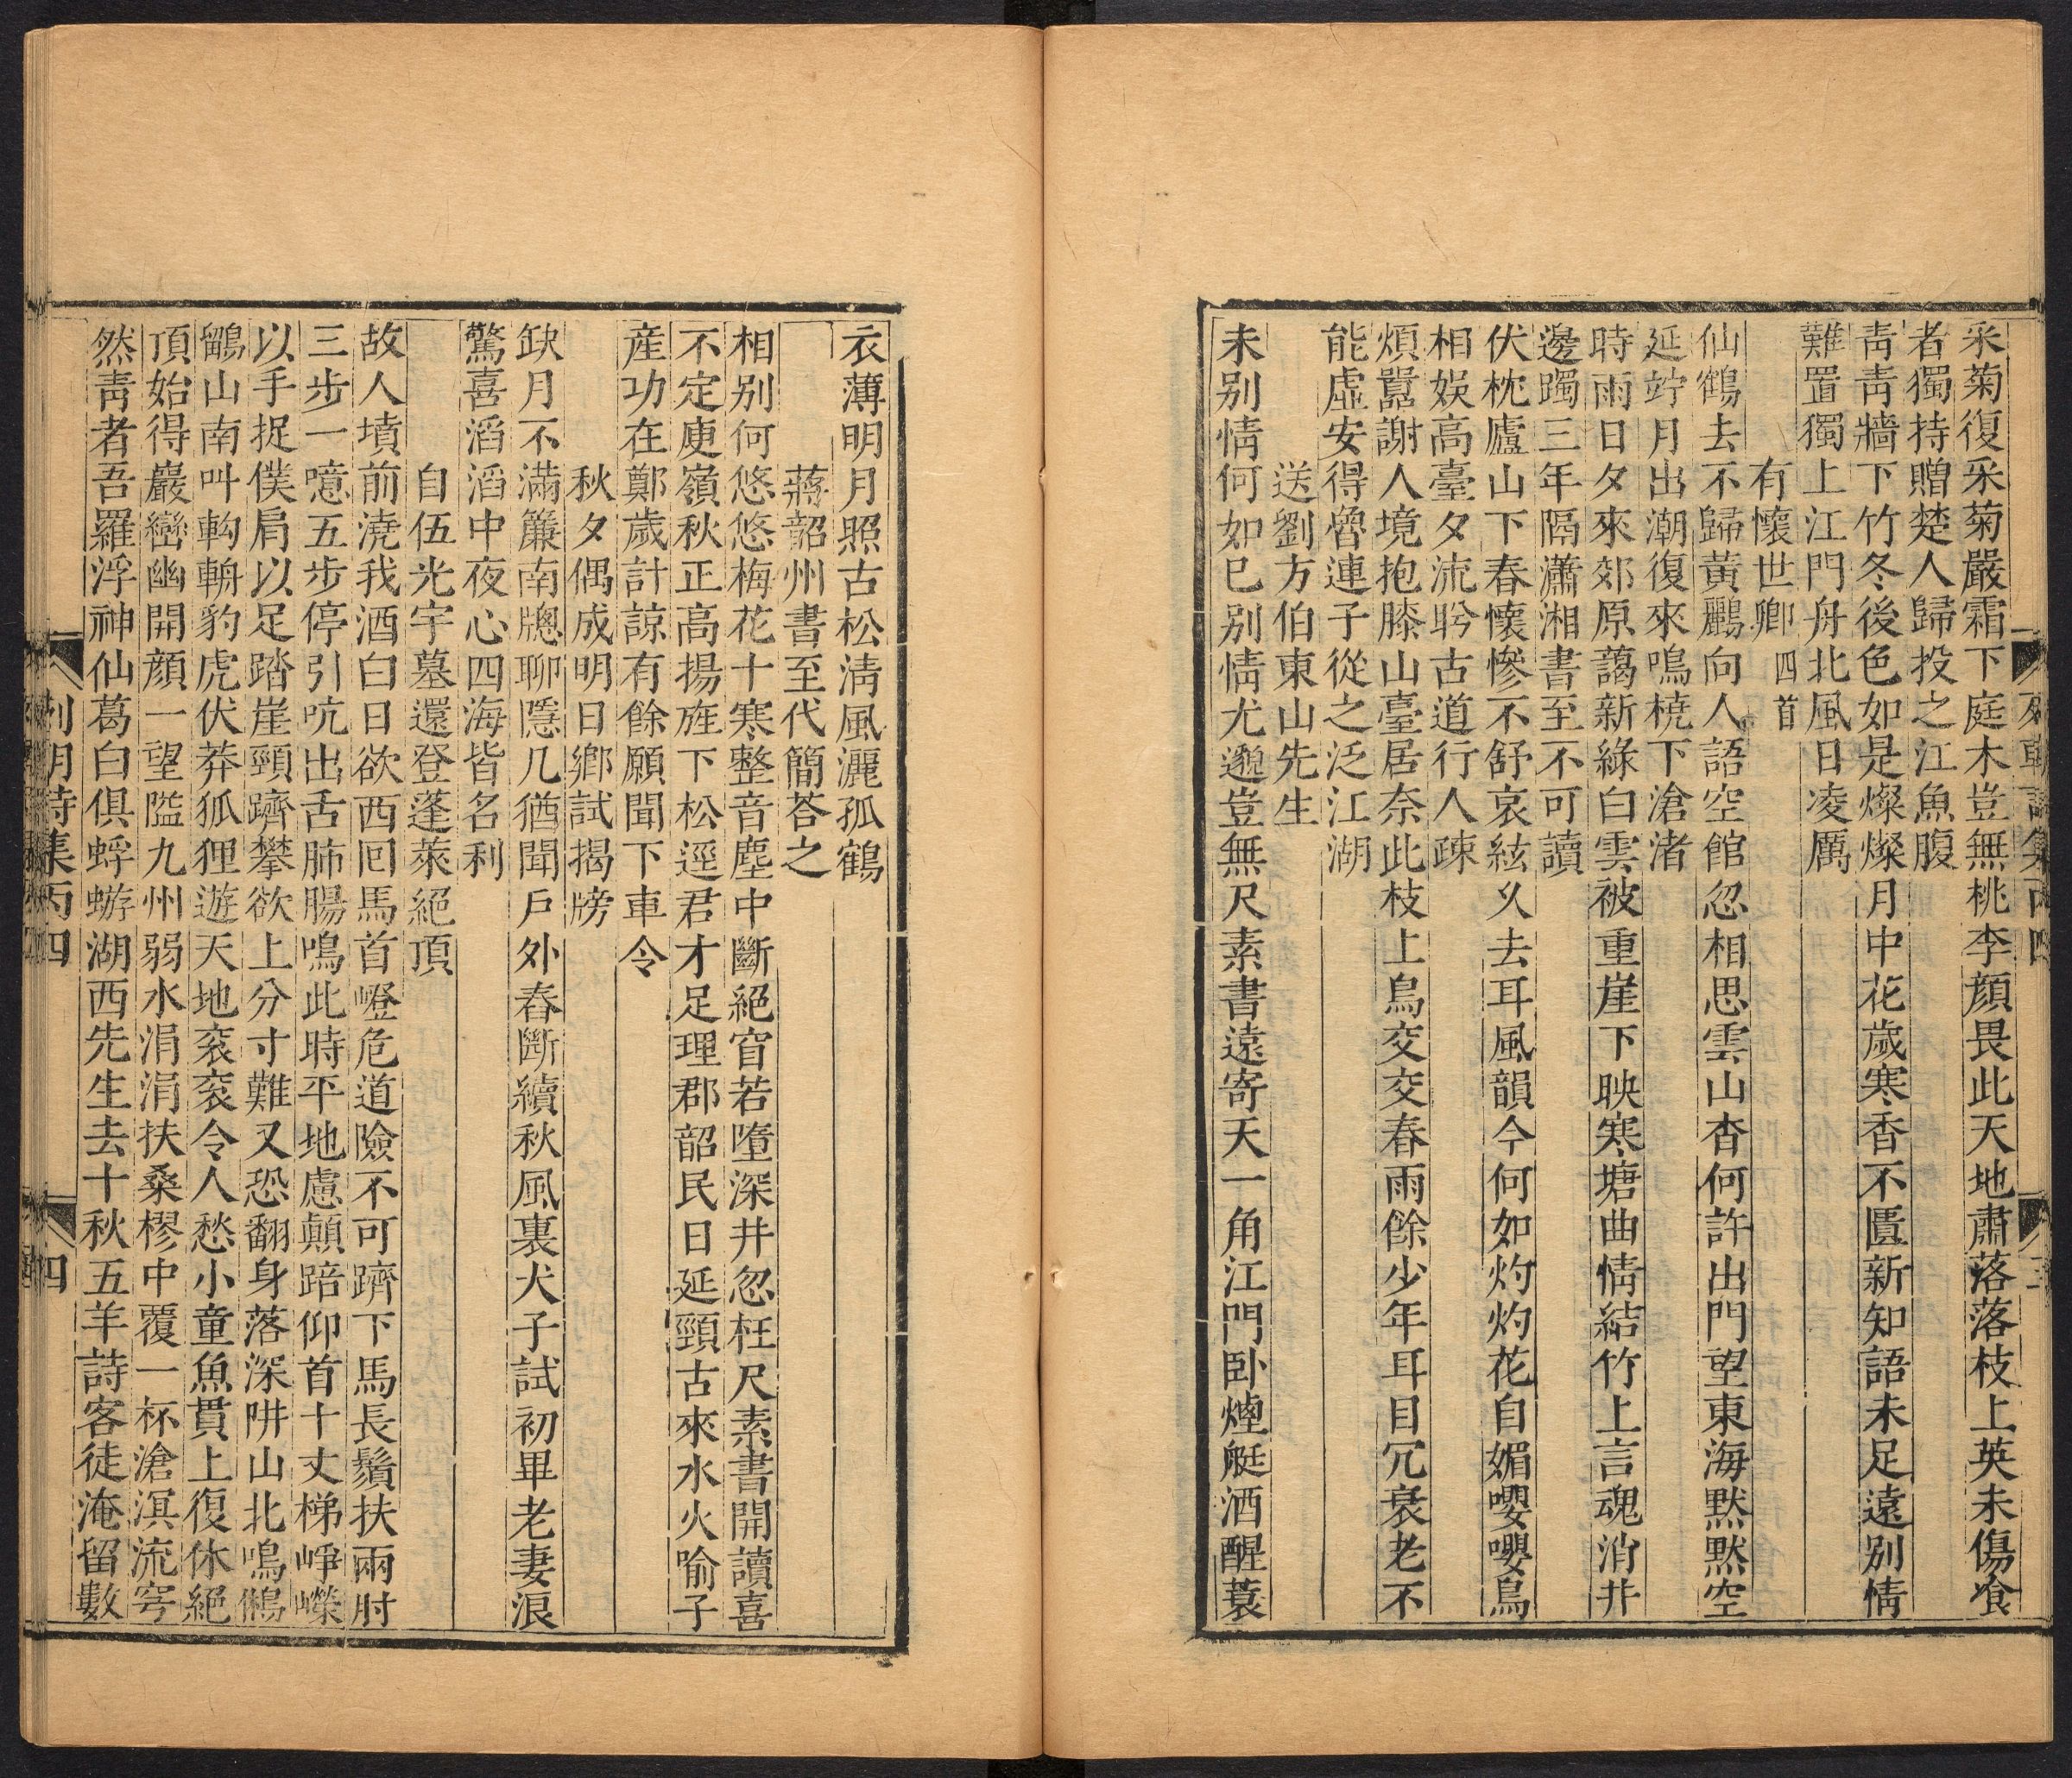 采菊復采菊嚴霜下庭木豈無桃李顏畏此天地肅落落枝上英未傷飡
者獨持贈楚人歸投之江魚腹
靑靑牆下竹冬後色如是燦燦月中花歲寒香不匱新知語未足遠别情
難置獨上江門舟北風日凌厲
有懷世卿四首
仙鶴去不歸黃鸝向人語空館忽相思雲山杳何許出門望東海默默空
延竚月出潮復來鳴橈下滄渚
時雨日夕來郊原藹新綠白雲被重崖下映寒塘曲情結竹上言魂消井
邊躅三年隔瀟湘書至不可讀
伏枕廬山下春懷慘不舒哀絃久去耳風韻今何如灼灼花自媚嚶嚶鳥
相娛高臺夕流盼古道行人疎
煩囂謝人境抱膝山臺居奈此枝上鳥交交春雨餘少年耳目冗衰老不
能虛安得魯連子從之泛江湖
送劉方伯東山先生
未别情何如已别情尤邈豈無尺素書遠寄天一角江門卧煙艇酒醒蓑
衣薄明月照古松淸風灑孤鶴
蔣韶州書至代簡荅之
相别何悠悠梅花十寒整音塵中斷絕窅若墮深井忽枉尺素書開讀喜
不定庾嶺秋正高揚旌下松逕君才足理郡韶民日延頸古來水火喻子
産功在鄭歲計諒有餘願聞下車令
秋夕偶成明日鄕試揭牓
缺月不滿簾南牎聊隱几猶聞戶外舂斷續秋風裏犬子試初畢老妻浪
驚喜滔滔中夜心四海皆名利
自伍光宇墓還登蓬萊絕頂
故人墳前澆我酒白日欲西囘馬首嶝危道險不可躋下馬長鬚扶兩肘
三步一噫五步停引吭出舌肺腸鳴此時平地慮顛踣仰首十丈梯崢嶸
以手捉僕肩以足踏崖頸躋攀欲上分寸難又恐翻身落深阱山北鳴鵂
鶹山南叫軥輈豹虎伏莽狐狸遊天地衮衮令人愁小童魚貫上復休絕
頂始得巖巒幽開顏一望隘九州弱水涓涓扶桑樛中覆一杯滄溟流穹
然靑者吾羅浮神仙葛白俱蜉蝣湖西先生去十秋五羊詩客徒淹留數
列朝詩集丙四
四